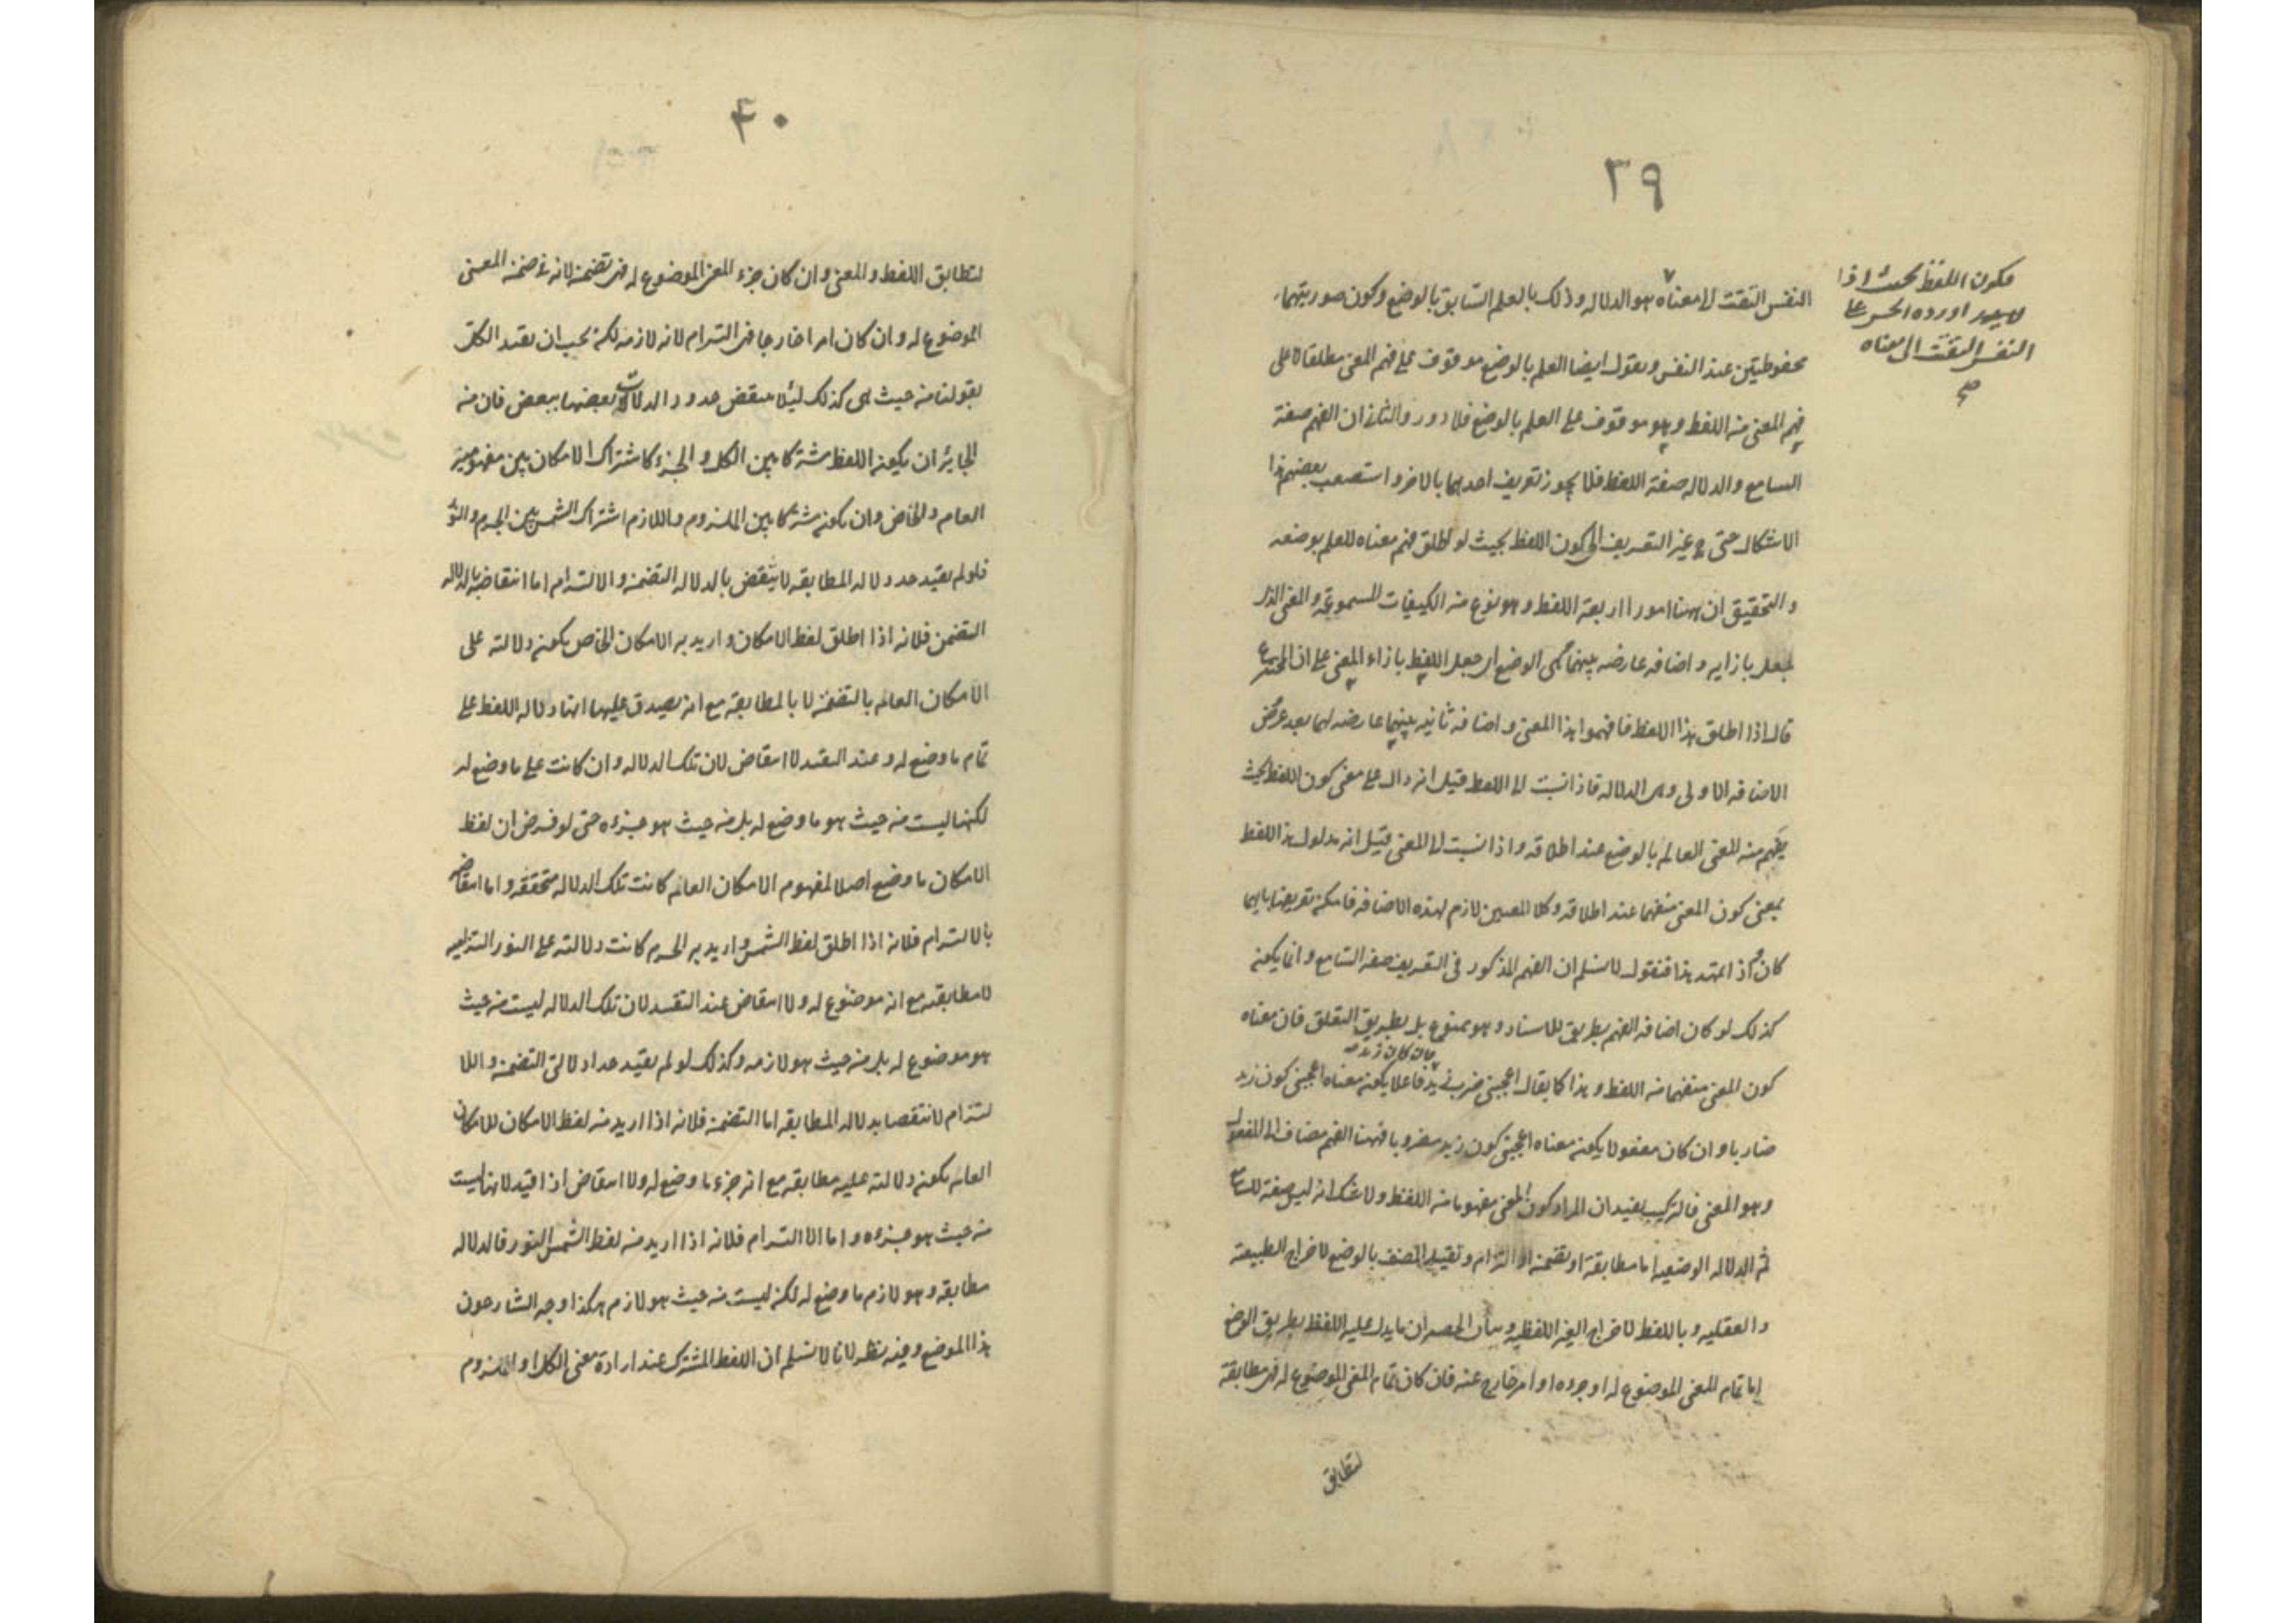 ٣٩
فكون اللفظ بحيث اذا
اورده الحس على
النفس التفتت الى معناه
صح
النفس التفتت الى معناه هو الدلالة وذلك بالعلم السابق بالوضع وكون صورتيهما
محفوظتين عند النفس ونقول ايضا العلم بالوضع موقوف على فهم المعنى مطلقا لا على
فهم المعنى من اللفظ وهو موقوف على العلم بالوضع فلا دور والثاني ان الفهم صفة
السامع والدلالة صفة اللفظ فلا يجوز تعريف احدهما بالاخر واستصعب بعضهم هذا
الاشكال حتى غير التعريف الى كون اللفظ بحيث لو اطلق فهم معناه للعلم بوضعه
والتحقيق ان ههنا امورا اربعة اللفظ وهو نوع من الكيفيات المسموعة والمعنى الذى
جعل بازايه واضافه عارضه بينهما هى الوضع اى جعل اللفظ بازاء المعنى على ان المخترع
قال اذا اطلق هذا اللفظ فافهموا هذا المعنى واضافه ثانيه بينهما عارضه لهما بعد عروض
الاضافه الاولى وهى الدلاله فاذا نسبت الى اللفظ قيل انه دال على معنى كون اللفظ بحيث
يفهم منه المعنى العالم بالوضع عند اطلاقه واذا نسبت الى المعنى قيل انه مدلول هذا اللفظ
بمعنى كون المعنى منفهما عند اطلاقه وكلا المعنيين لازم لهذه الاضافه فامكن تعريفها بايهما
كان اذ اتمهد هذا فنقول لا نسلم ان الفهم المذكور فى التعريف صفه السامع وانما يكون
كذلك لو كان اضافه الفهم بطريق للاسناد وهو ممنوع بل بطريق التعلق فان معناه
فان كان زيد
كون المعنى منفهما من اللفظ وهذا كما يقال اعجبنى ضرب زيد فاعلا يكون معناه اعجبنى كون زيد
ضاربا وان كان مفعولا يكون معناه اعجبنى كون زيد مضروبا فههنا الفهم مضاف الى المفعول
وهو المعنى فالتركيب يفيد ان المراد كون المعنى مفهوما من اللفظ ولا شك انه ليس صفة للسامع
ثم الدلاله الوضعيه اما مطابقة او تضمن او التزام وتقييد المصنف بالوضع لاخراج الطبيعة
والعقليه وباللفظ لاخراج الغير اللفظيه وبيان الحصر ان ما يدل عليه اللفظ بطريق الوضع
اما تمام المعنى الموضوع له او جزوه او امر خارج عنه فان كان تمام المعنى الموضوع له فهى مطابقة
لتطابق
٤٠
لتطابق اللفظ والمعنى وان كان جزء المعنى الموضوع له فهى تضمن لانه فى ضمن المعنى
الموضوع له وان كان امرا خارجا فهى التزام لانه لازمه لكن يجب ان يقيد الكل
بقولنا من حيث هى كذلك ليئلا ينتقض حدود الدلالات بعضها ببعض فان من
الجايز ان يكون اللفظ مشتركا بين الكل والجزء كاشتراك الامكان بين مفهومين
العام والخاص وان يكون مشتركا بين الملزوم واللازم اشتراك الشمس بين الجرم والنور
فلو لم يقيد حد دلاله المطابقه لانتقض بالدلاله التضمن والالتزام اما انتقاضه بالدلاله
التضمن فلانه اذا اطلق لفظ الامكان واريد به الامكان الخاص يكون دلالته على
الامكان العام بالتضمن لا بالمطابقة مع انه يصدق عليها انها دلاله اللفظ على
تمام ما وضع له وعند القيد لا انتقاض لان تلك الدلاله وان كانت على ما وضع له
لكنها ليست من حيث هو ما وضع له بل من حيث هو جزءه حتى لو فرض ان لفظ
الامكان ما وضع اصلا لمفهوم الامكان العام كانت تلك الدلاله متحققه واما انتقاضه
بالالتزام فلانه اذا اطلق لفظ الشمس واريد به الجرم كانت دلالته على النور التزاميه
لا مطابقه مع انه موضوع له ولا انتقاض عند التقييد لان تلك الدلاله ليست من حيث
هو موضوع له بل من حيث هو لازمه وكذلك لو لم يقيد حدا دلالتى التضمن واللا
لتزام لانتقضا بدلاله المطابقه اما التضمن فلانه اذا اريد من لفظ الامكان للامكان
العام يكون دلالته عليه مطابقه مع انه جزء ما وضع له ولا انتقاض اذا قيد لانها ليست
من حيث هو جزءه واما الا التزام فلانه اذا اريد من لفظ الشمس النور فالدلاله
مطابقه وهو لازم ما وضع له لكن ليست من حيث هو لازم هكذا وجه الشارحون
هذا الموضع وفيه نظر لانا لا نسلم ان اللفظ المشترك عند ارادة معنى الكل او الملزوم